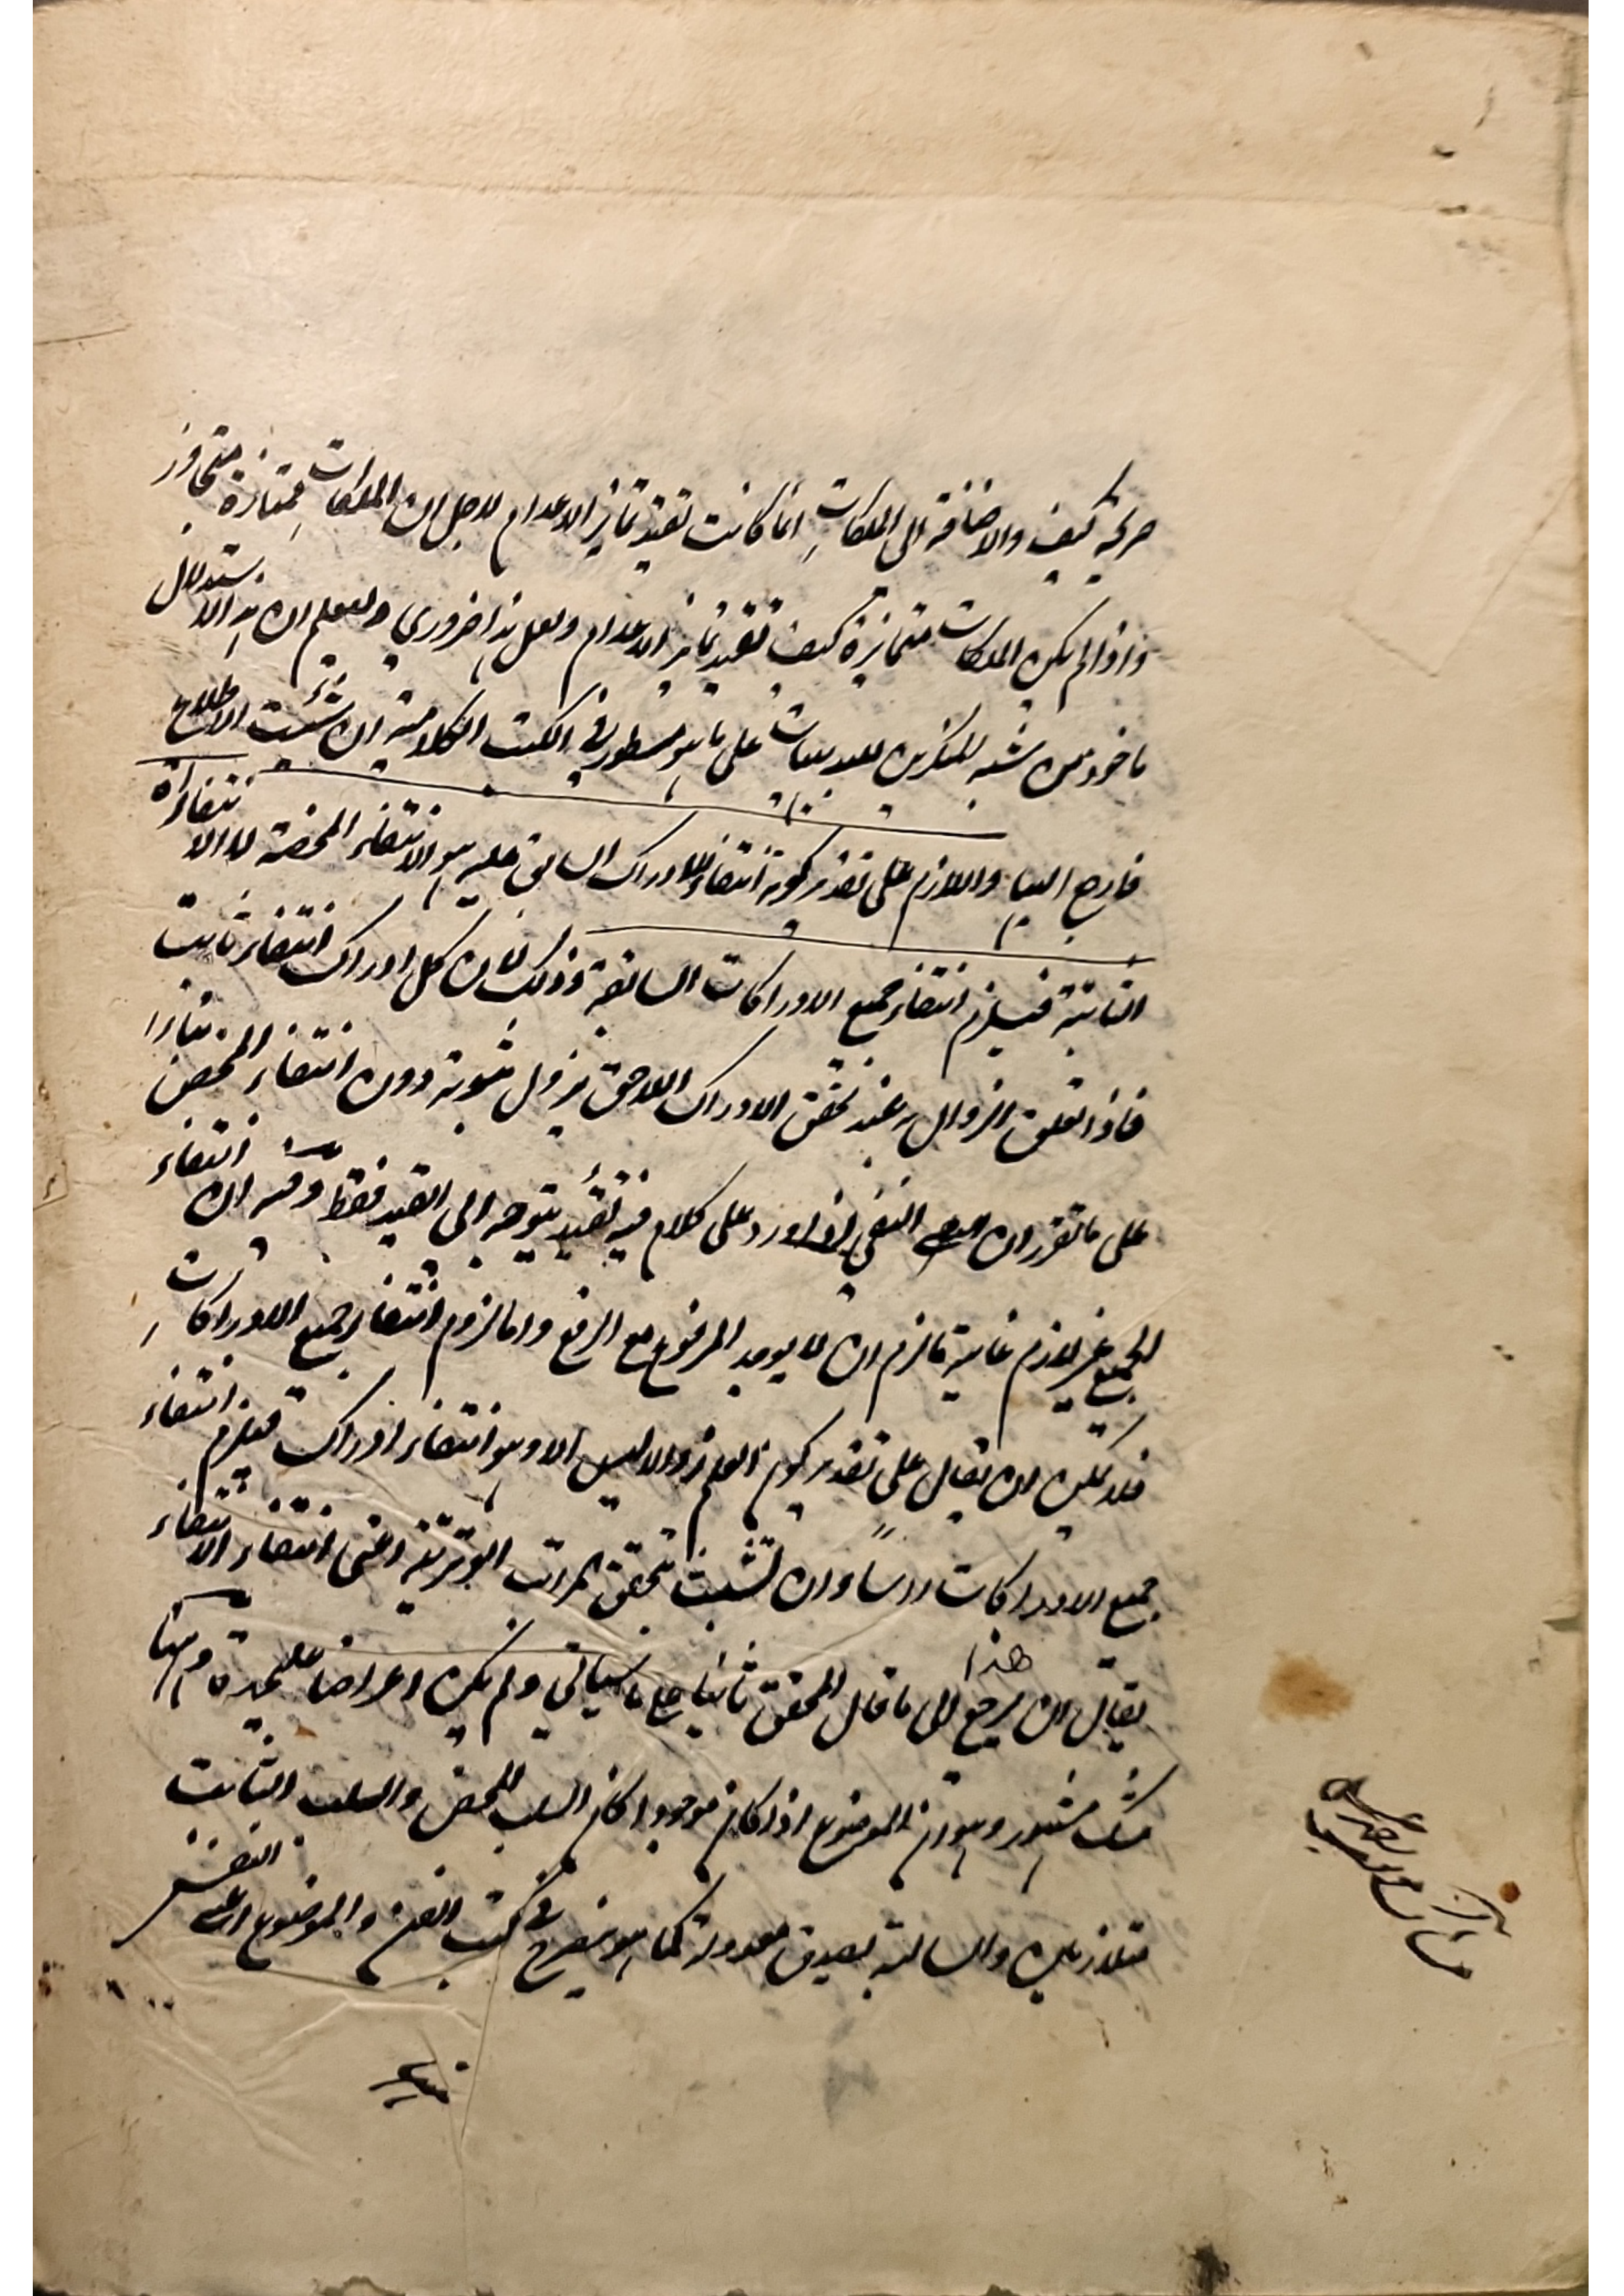 صريحة كيف والاضافة الى الملكات انما كانت تفيد تمايز الاعدام لاجل ان الملكات ممتازة متجاوز
واذا لم يكن الملكات متمايزة كيف تفيد تمايز الاعدام ولعل هذا ضروري وليعلم ان هذا الاستدلال
ماخوذ من شبه المنكرين للبديهيات على ما هو مسطور في الكتب الكلامية ان شئت الاطلاع
فارجع اليها واللازم على تقدير كونه انتفاء للادراك السابق عليه هو الانتفاء المحضة لا الانتفاءات
الثابتة فيلزم انتفاء جميع الادراكات السابقة وذلك لان كل ادراك انتفاء ثابت
فاذا تعلق الزوال به عند تحقق الادراك اللاحق يزول ثبوته دون انتفاء المحض بناء
على ما تقرر ان النفي اذا ورد على كلام فيه تقييد يتوجه الى القيد فقط وفيه ان انتفاء
الجميع غير لازم غاية ما لزم ان لا يوجد المرفوع مع الرفع واما لزوم انتفاء جميع الادراكات
فلا يمكن ان يقال على تقدير كون العلم زوالا ليس الا وهو انتفاء ادراك فيلزم انتفاء
جميع الادراكات راسا وان تشبث بتحقق المراتب الوترية اعني انتفاء الانتفاء
يقال ان هذا يرجع الى ما قال المحقق ثانيا على ما سيأتي ولم يكن اعراضا عليحدة وههنا
شك مشهور وهو ان الموضوع اذا كان موجودا كان السلب المحض والسلب الثابت
متلازمين والسالبة بصدق معدولة كما هو مصرح في كتب الفن والموضوع اعني النفس